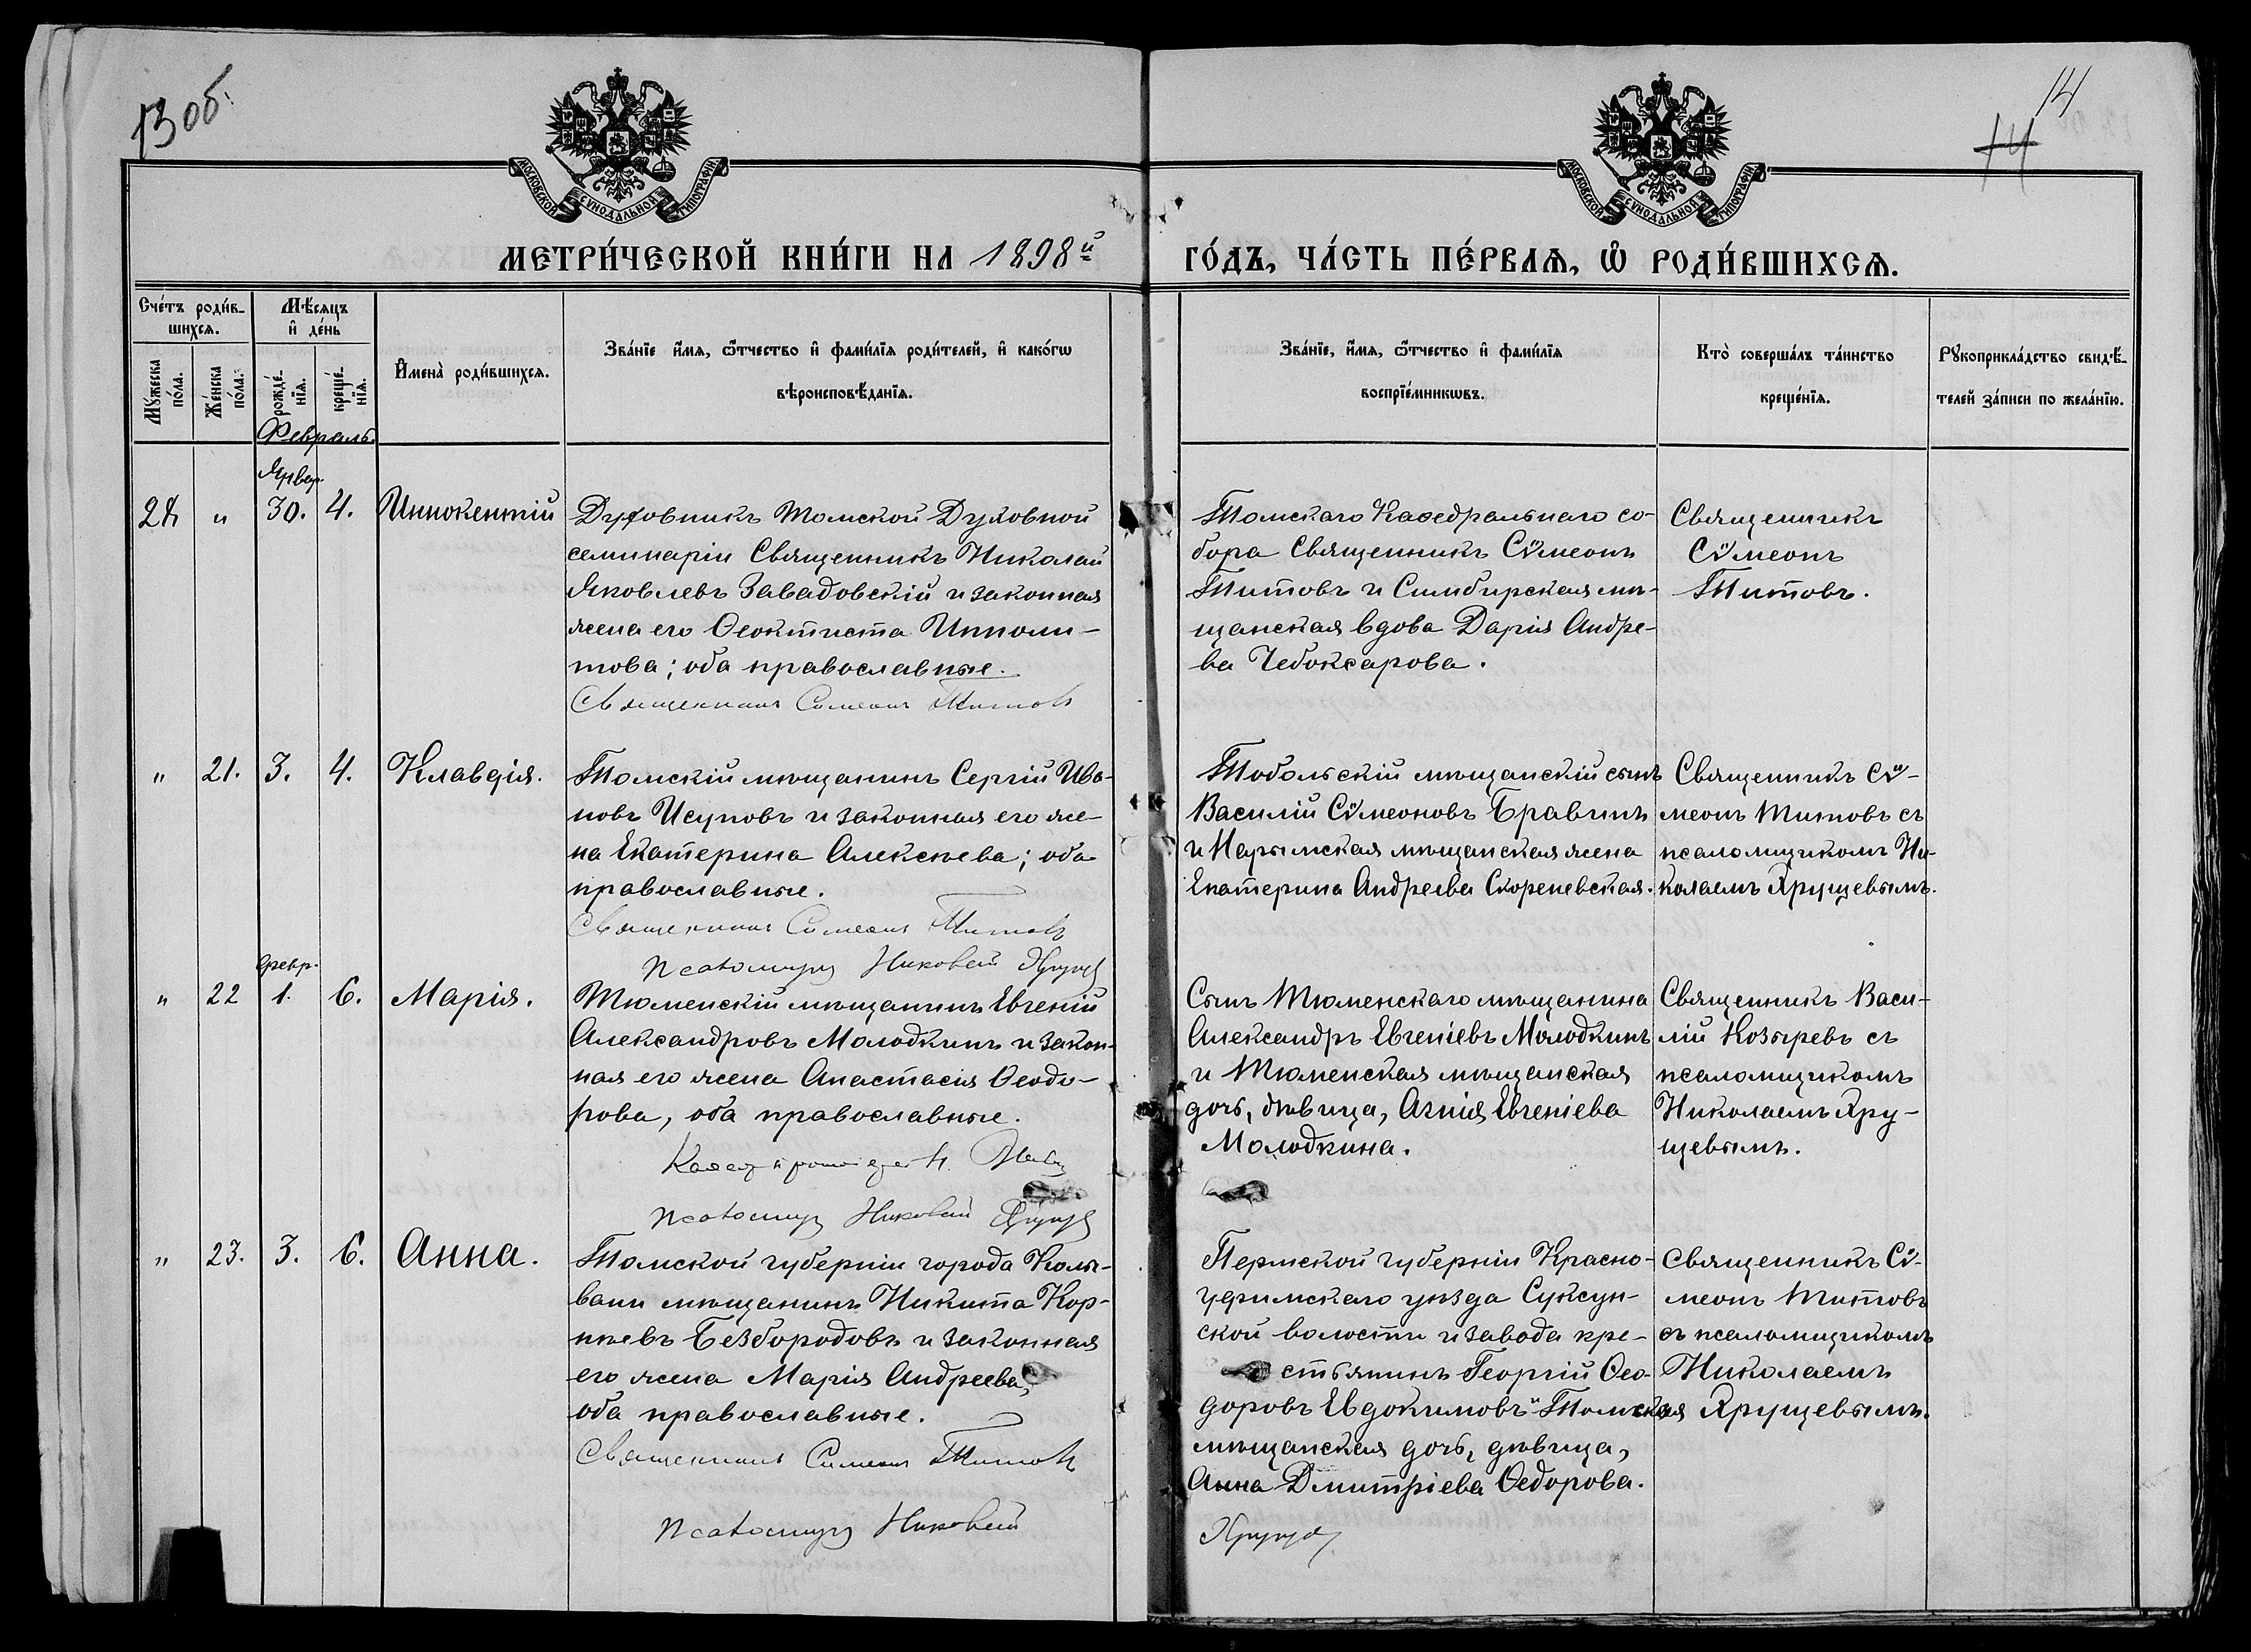 13 об.
14
14
МОСКОВСКОЙ СѴНОДАЛЬНОЙ ТИПОГРАФІИ
МОСКОВСКОЙ СѴНОДАЛЬНОЙ ТИПОГРАФІИ
МЕТРИ́ЧЕСКОЙ КНИ́ГИ НА 1898й ГО́ДЪ, ЧА́СТЬ ПЕ́РВАѦ, Ѡ҆ РОДИ́ВШИХСѦ.
Сче́тъ роди́в-
шихсѧ.
Мѣ́сѧцъ
и҆ де́нь
Мꙋ́жеска
по́ла.
Же́нска
по́ла.
рожде́-
нїѧ.
креще́-
нїѧ.
И҆мена̀ роди́вшихсѧ.
Зва́нїе и҆́мѧ, ѻ҆́тчество и҆ фами́лїѧ роди́телей, и҆ како́гѡ
вѣроисповѣ́данїѧ.
Зва́нїе, и҆́мѧ, ѻ҆́тчество и҆ фами́лїѧ
воспрїе́мникѡвъ.
Кто̀ соверша́лъ та́инство
креще́нїѧ.
Рꙋкоприкла́дство свидѣ́-
телей за́писи по жела́нїю.
Февраль.
Январ.
"
30.
4.
Иннокентій
Духовникъ Томской Духовной
семинаріи Священникъ Николай
Яковлевъ Завадовскій и законная
жена его Ѳеоктиста Ипполи-
това; оба православные.
Священникъ Симеонъ Титовъ
Томскаго Каѳедральнаго со-
бора Священникъ Сѵмеонъ
Титовъ и Симбирская мѣ-
щанская вдова Дарія Андре-
ва Чебоксарова.
Священникъ
Сѵмеонъ
Титовъ.
"
21.
3.
4.
Клавдія.
Томскій мѣщанинъ Сергій Ива-
новъ Исуповъ и законная его же-
на Екатерина Алексѣева; оба
православные.
Священникъ Симеонъ Титовъ
Псаломщ Николай Хрущ
Тобольскій мѣщанскій сынъ
Василій Сѵмеоновъ Бравинъ
и Нарымская мѣщанская жена
Екатерина Андреева Скореневская.
Священникъ Сѵ-
меонъ Титовъ съ
псаломщикомъ Ни-
колаемъ Хрущевымъ.
февр.
"
22
1.
6.
Марія.
Тюменскій мѣщанинъ Евгеній
Александровъ Молодкинъ и закон-
ная его жена Анастасія Ѳеодо-
рова, оба православные.
Псаломщ Николай Хрущ
Сынъ Тюменскаго мѣщанина
Александръ Евгеніевъ Молодкинъ
и Тюменская мѣщанская
дочь, дѣвица, Агнія Евгеніева
Молодкина.
Священникъ Васи-
лій Козыревъ съ
псаломщикомъ
Николаемъ Хру-
щевымъ.
"
23.
3.
6.
Анна.
Томской губерніи города Колы-
вани мѣщанинъ Никита Кор-
нѣевъ Безбородовъ и законная
его жена Марія Андреева,
оба православные.
Священникъ Симеонъ Титовъ
Псаломщ Николай
Пермской губерніи Красно-
уфимскаго уѣзда Суксун-
ской волости и завода кре-
стьянинъ Георгій Ѳео-
доровъ Евдокимовъ и Томская
мѣщанская дочь, дѣвица,
Анна Дмитріева Ѳедорова.
Хрущ
Священникъ Сѵ-
меонъ Титовъ
съ псаломщикомъ
Николаемъ
Хрущевымъ.